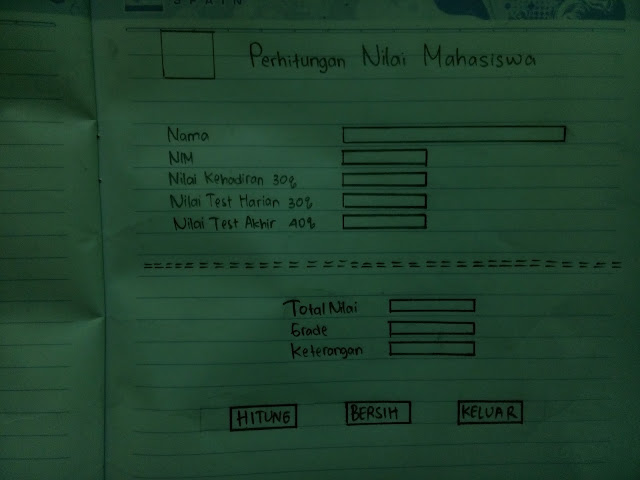 SPAIN
Perhitungan Nilai Mahasiswa
Nama
NIM
Nilai Kehadiran 30%
Nilai Test Harian 30%
Nilai Test Akhir 40%
Total Nilai
Grade
Keterangan
HITUNG BERSIH KELUAR